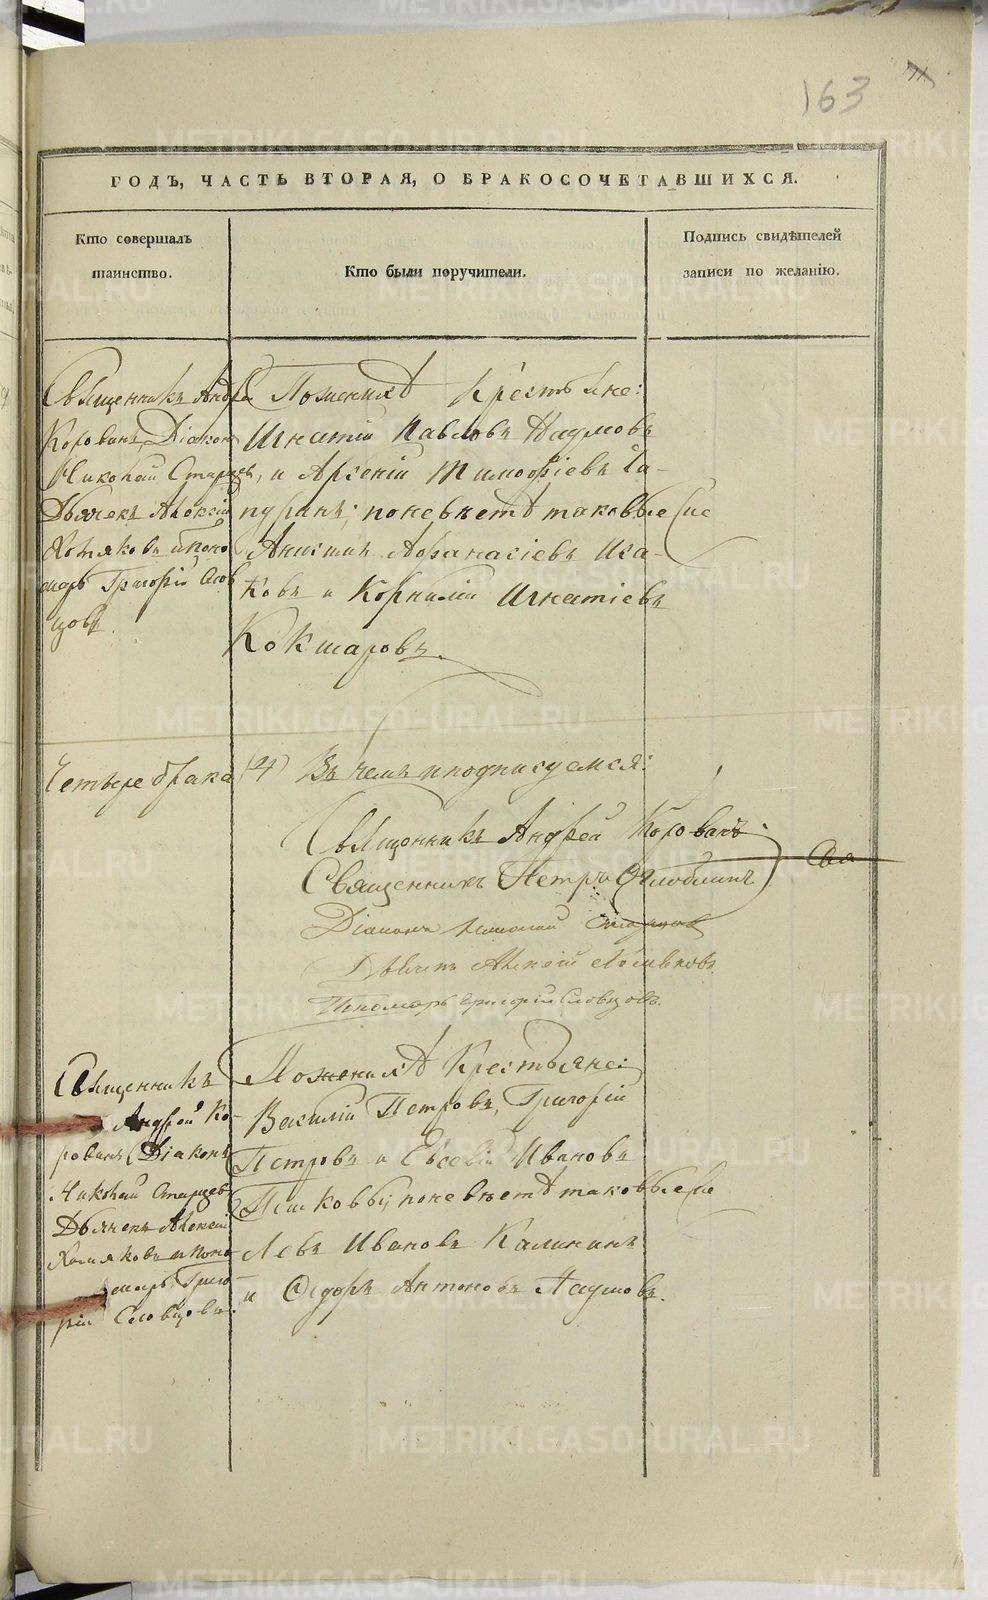 163
ГОДЪ, ЧАСТЬ ВТОРАЯ, О БРАКОСОЧЕТАВШИХСЯ.
Кто совершалъ
таинство.
Кто были поручители.
Подпись свидѣтелей
записи по желанію.
Священникъ Андрей
Корованъ, Діаконъ
Николай Старцев,
Дьячекъ Алексій
Хотяковъ и поно
марь Григорій Слов
цовъ.
По женихѣ крестьяне:
Игнатій Павловъ Наумовъ
и Арсеній Тимофіевъ Ча-
пуринъ; по невѣстѣ таковые же
Анисим Афанасіевъ Иса-
ковъ и Корнилій Игнатіевъ
Кокшаровъ.
Четыре брака (4) Въ чемъ и подписуемся:
Священникъ Андрей Корованъ.
Священникъ Петръ
Діаконъ Николай Старцев
Дьячекъ Алексій
Пономарь Григорій Словцовъ.
Священникъ
Андрей Ко-
рованъ Діаконъ
Николай Старцевъ
Дьячекъ Алексій
и поно
марь Григо
рій Словцовъ.
По женихѣ Крестьяне:
Василій Петровъ, Григорій
Петровъ и Евсевій Ивановъ
по невѣстѣ таковые же
Левъ Ивановъ Калининъ
и Ѳедоръ Антоновъ Наумовъ.
METRIKI.GASO-URAL.RU